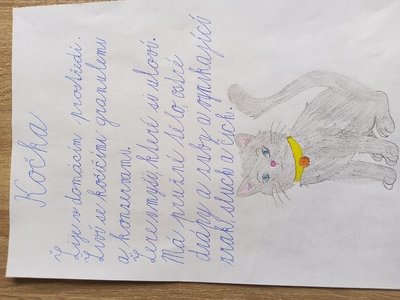 Kočka
Žije v domácím prostředí.
Živí se kočičími granulemi
a konzervami.
Žere i myši, které si uloví.
Má pružné tělo, ostré
drápy a zuby a vynikající
zrak, sluch a čich.